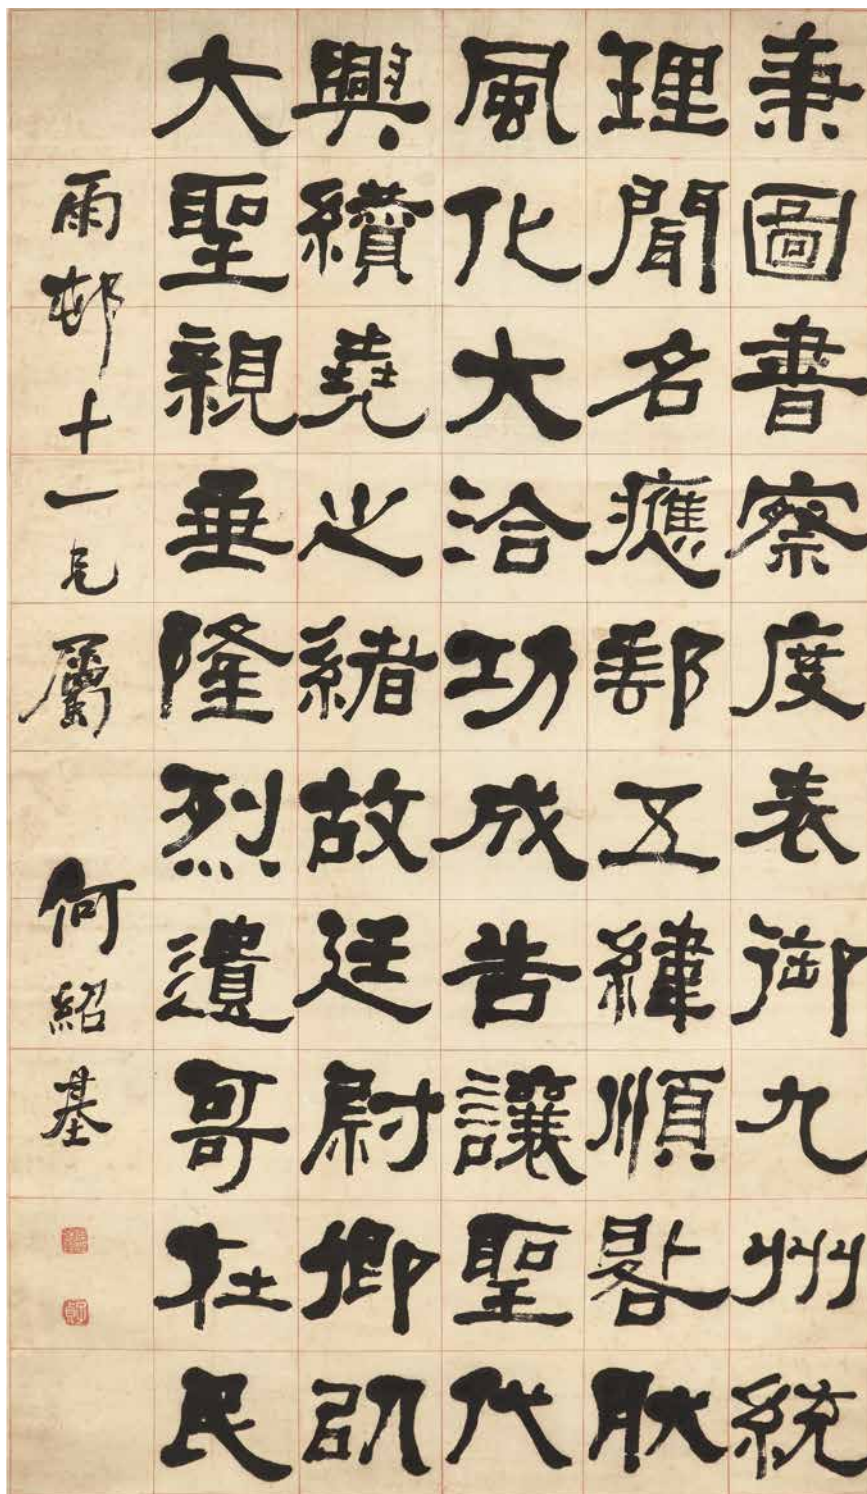 秉圖書察度表御九州統
理聞名應五緯順
風化大洽功成告讓聖代
興纘堯之緒故廷尉卿
大聖親垂隆烈遺哥在民
雨邨十一兄屬 何紹基